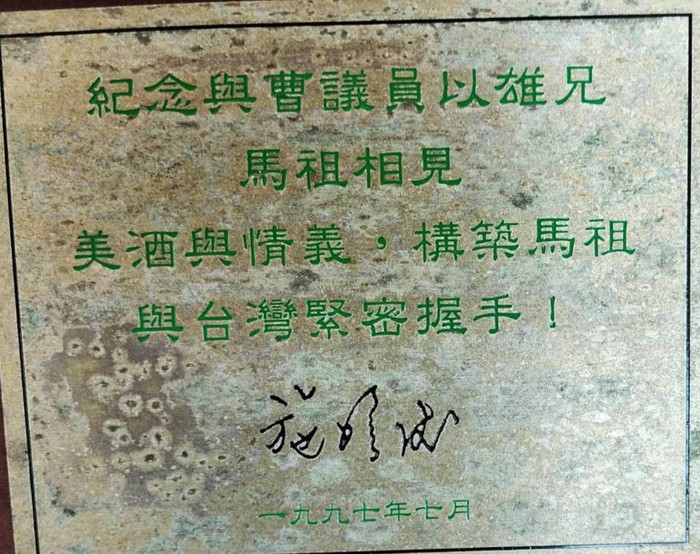 紀念與曹議員以雄兄
馬祖相見
美酒與情義，構築馬祖
與台灣緊密握手！
施明德
一九九七年七月